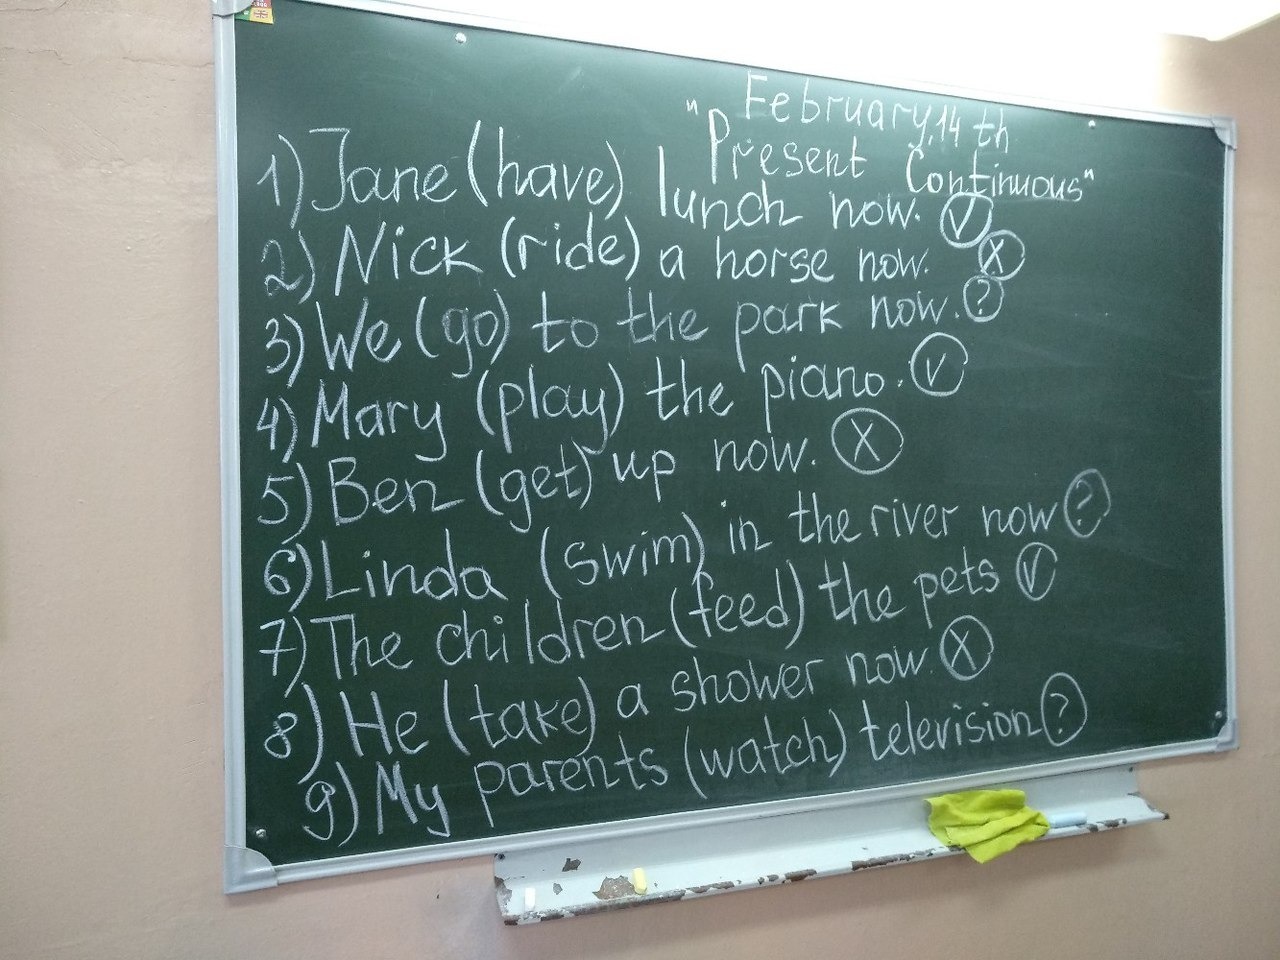 February, 14 th
"Present Continuous"
1) Jane (have) lunch now. ✓
2) Nick (ride) a horse now. X
3) We (go) to the park now. ?
4) Mary (play) the piano. ✓
5) Ben (get) up now. X
6) Linda (swim) in the river now ?
7) The children (feed) the pets ✓
8) He (take) a shower now. X
9) My parents (watch) television ?